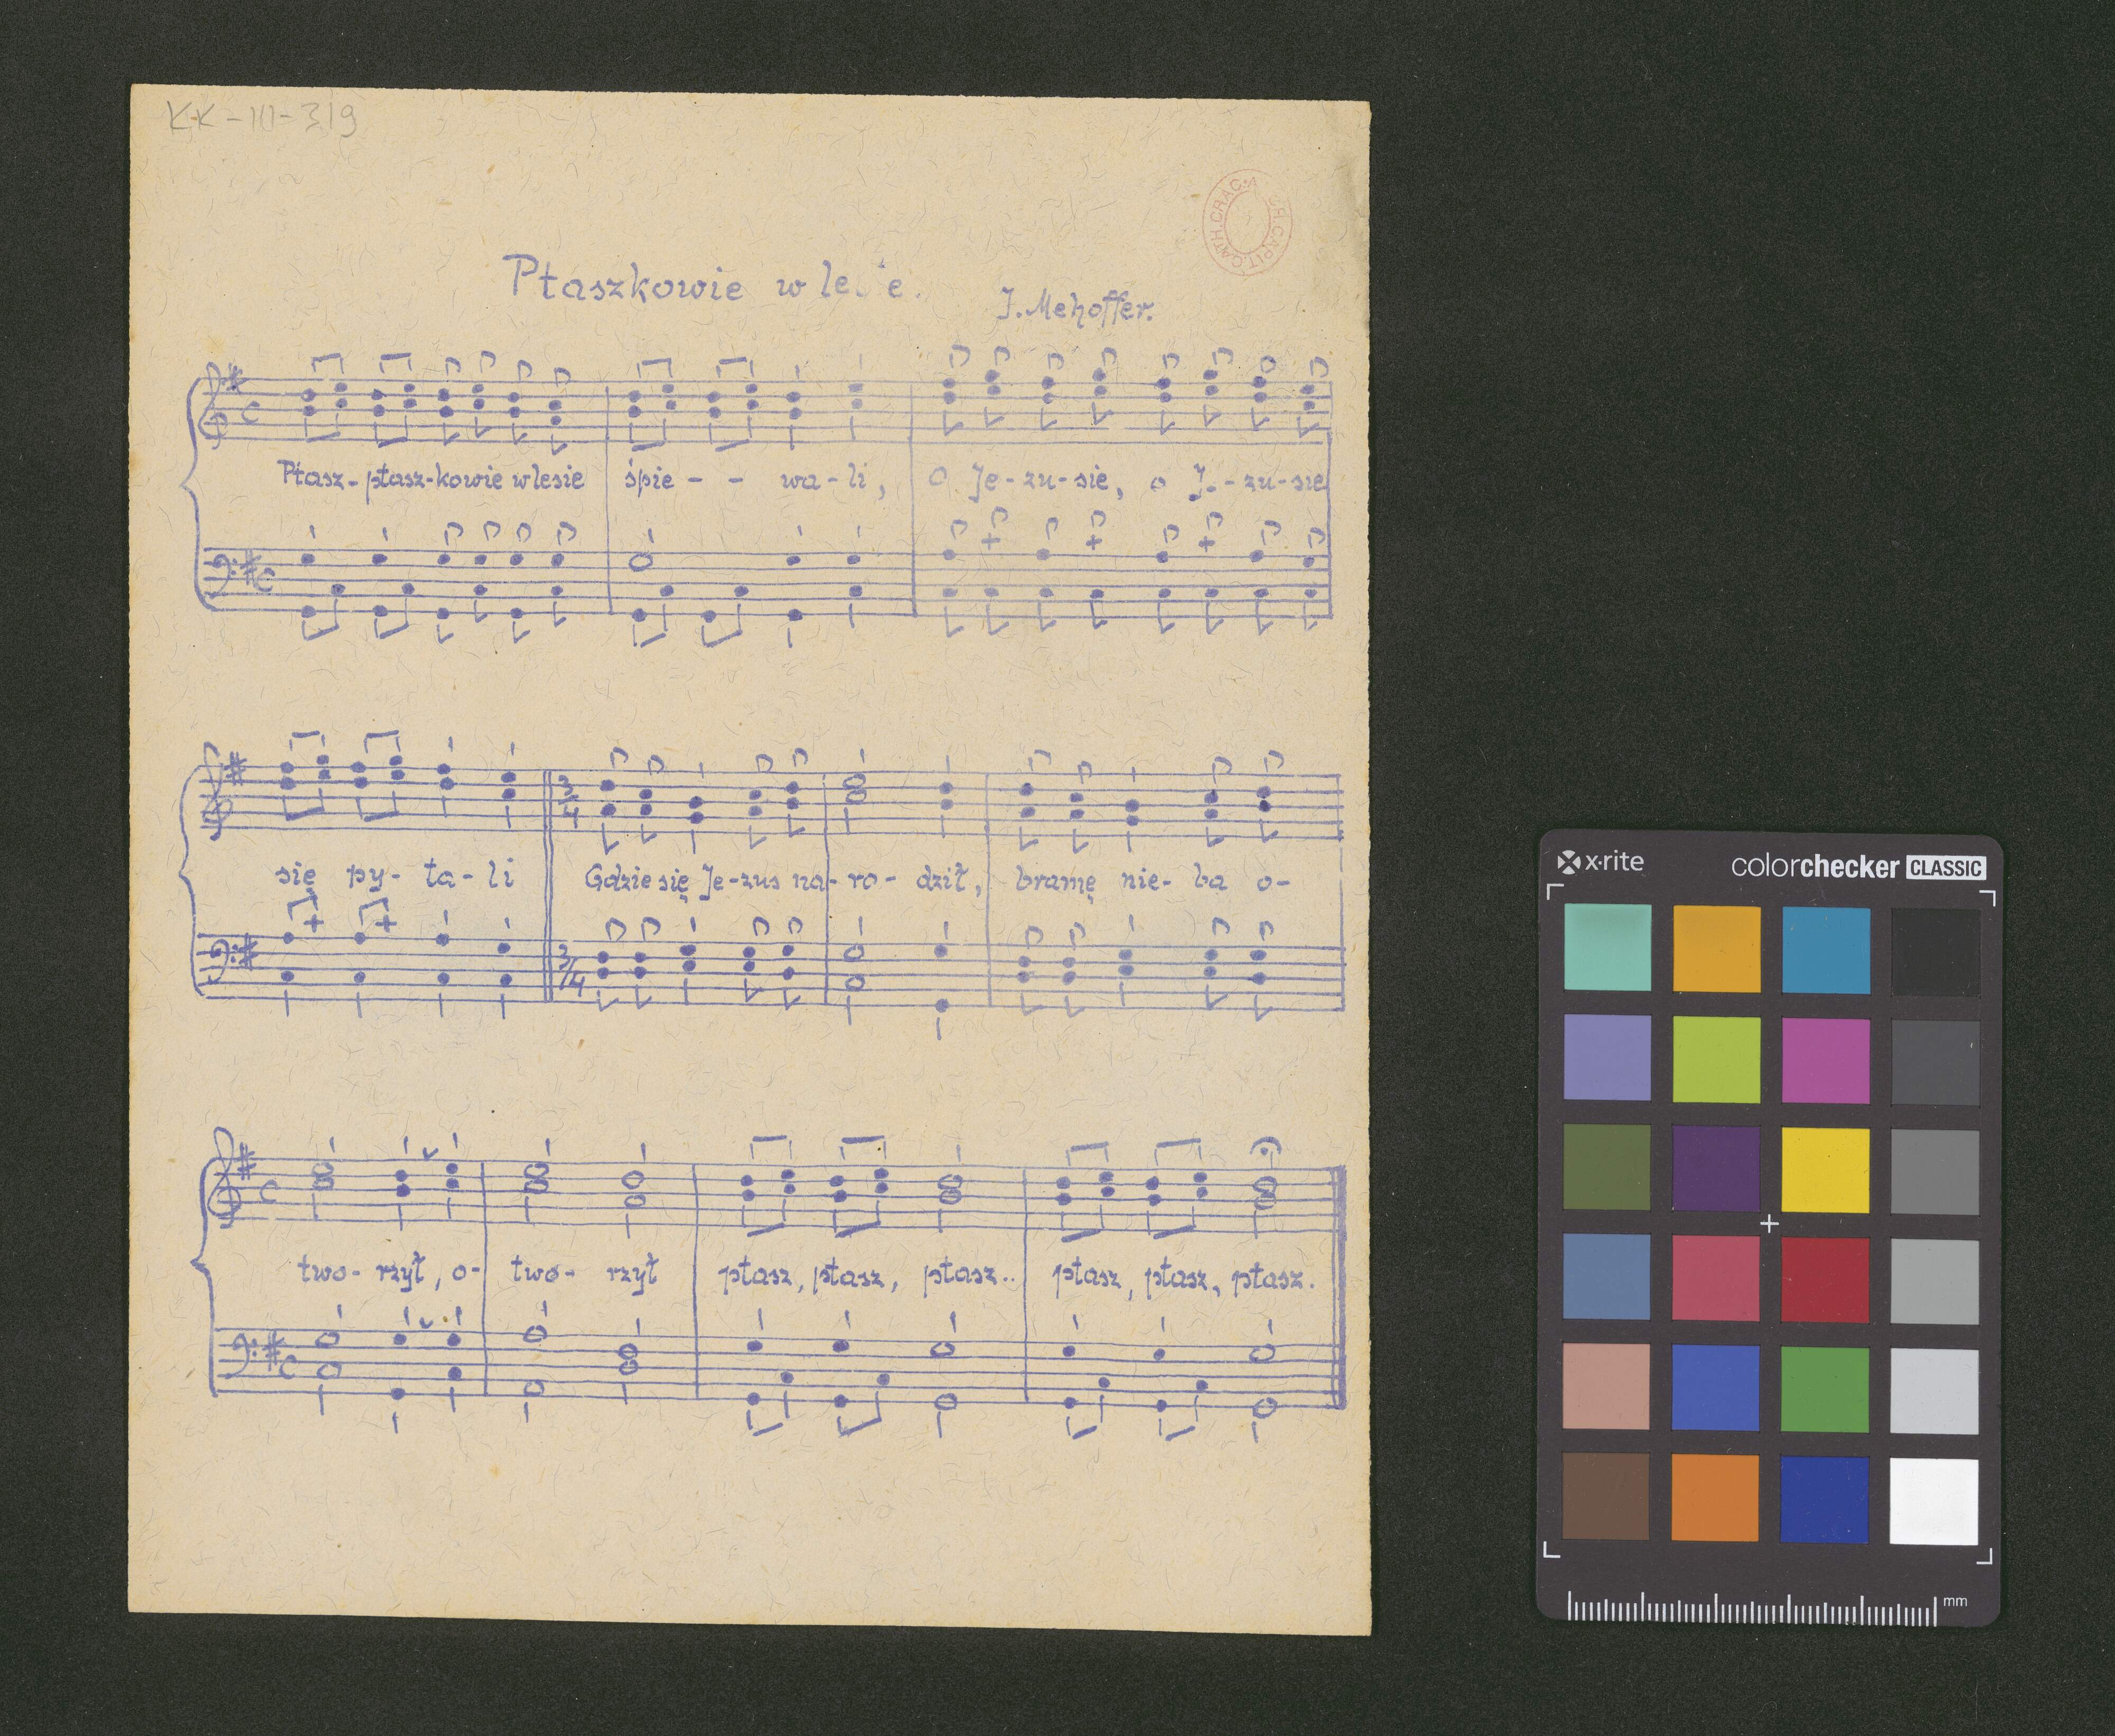 KK-III-319
CATH. CRAC. CAPIT.
Ptaszkowie w
J. Mehoffer.
C
Ptasz-ptasz-kowie w lesie śpie - - wa-li, O Je-zu-sie, o J.-zu-sie
C
3/4
się py-ta-li Gdzie się Je-zus na-ro-dził, bramę nie-ba o-
3/4
C
two-rzył, o- two- rzył ptasz, ptasz, ptasz.. ptasz, ptasz, ptasz.
C
x·rite colorchecker CLASSIC
mm